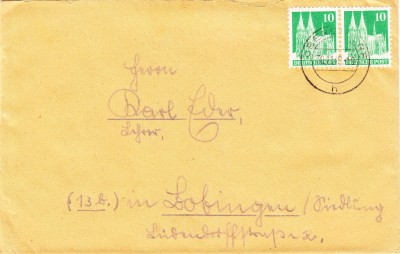 10 10
DEUTSCHE POST DEUTSCHE POST
b
Herrn
Karl Eder,
Lehrer,
(13b.) in Bobingen / Siedlung
Ludendorffstraße